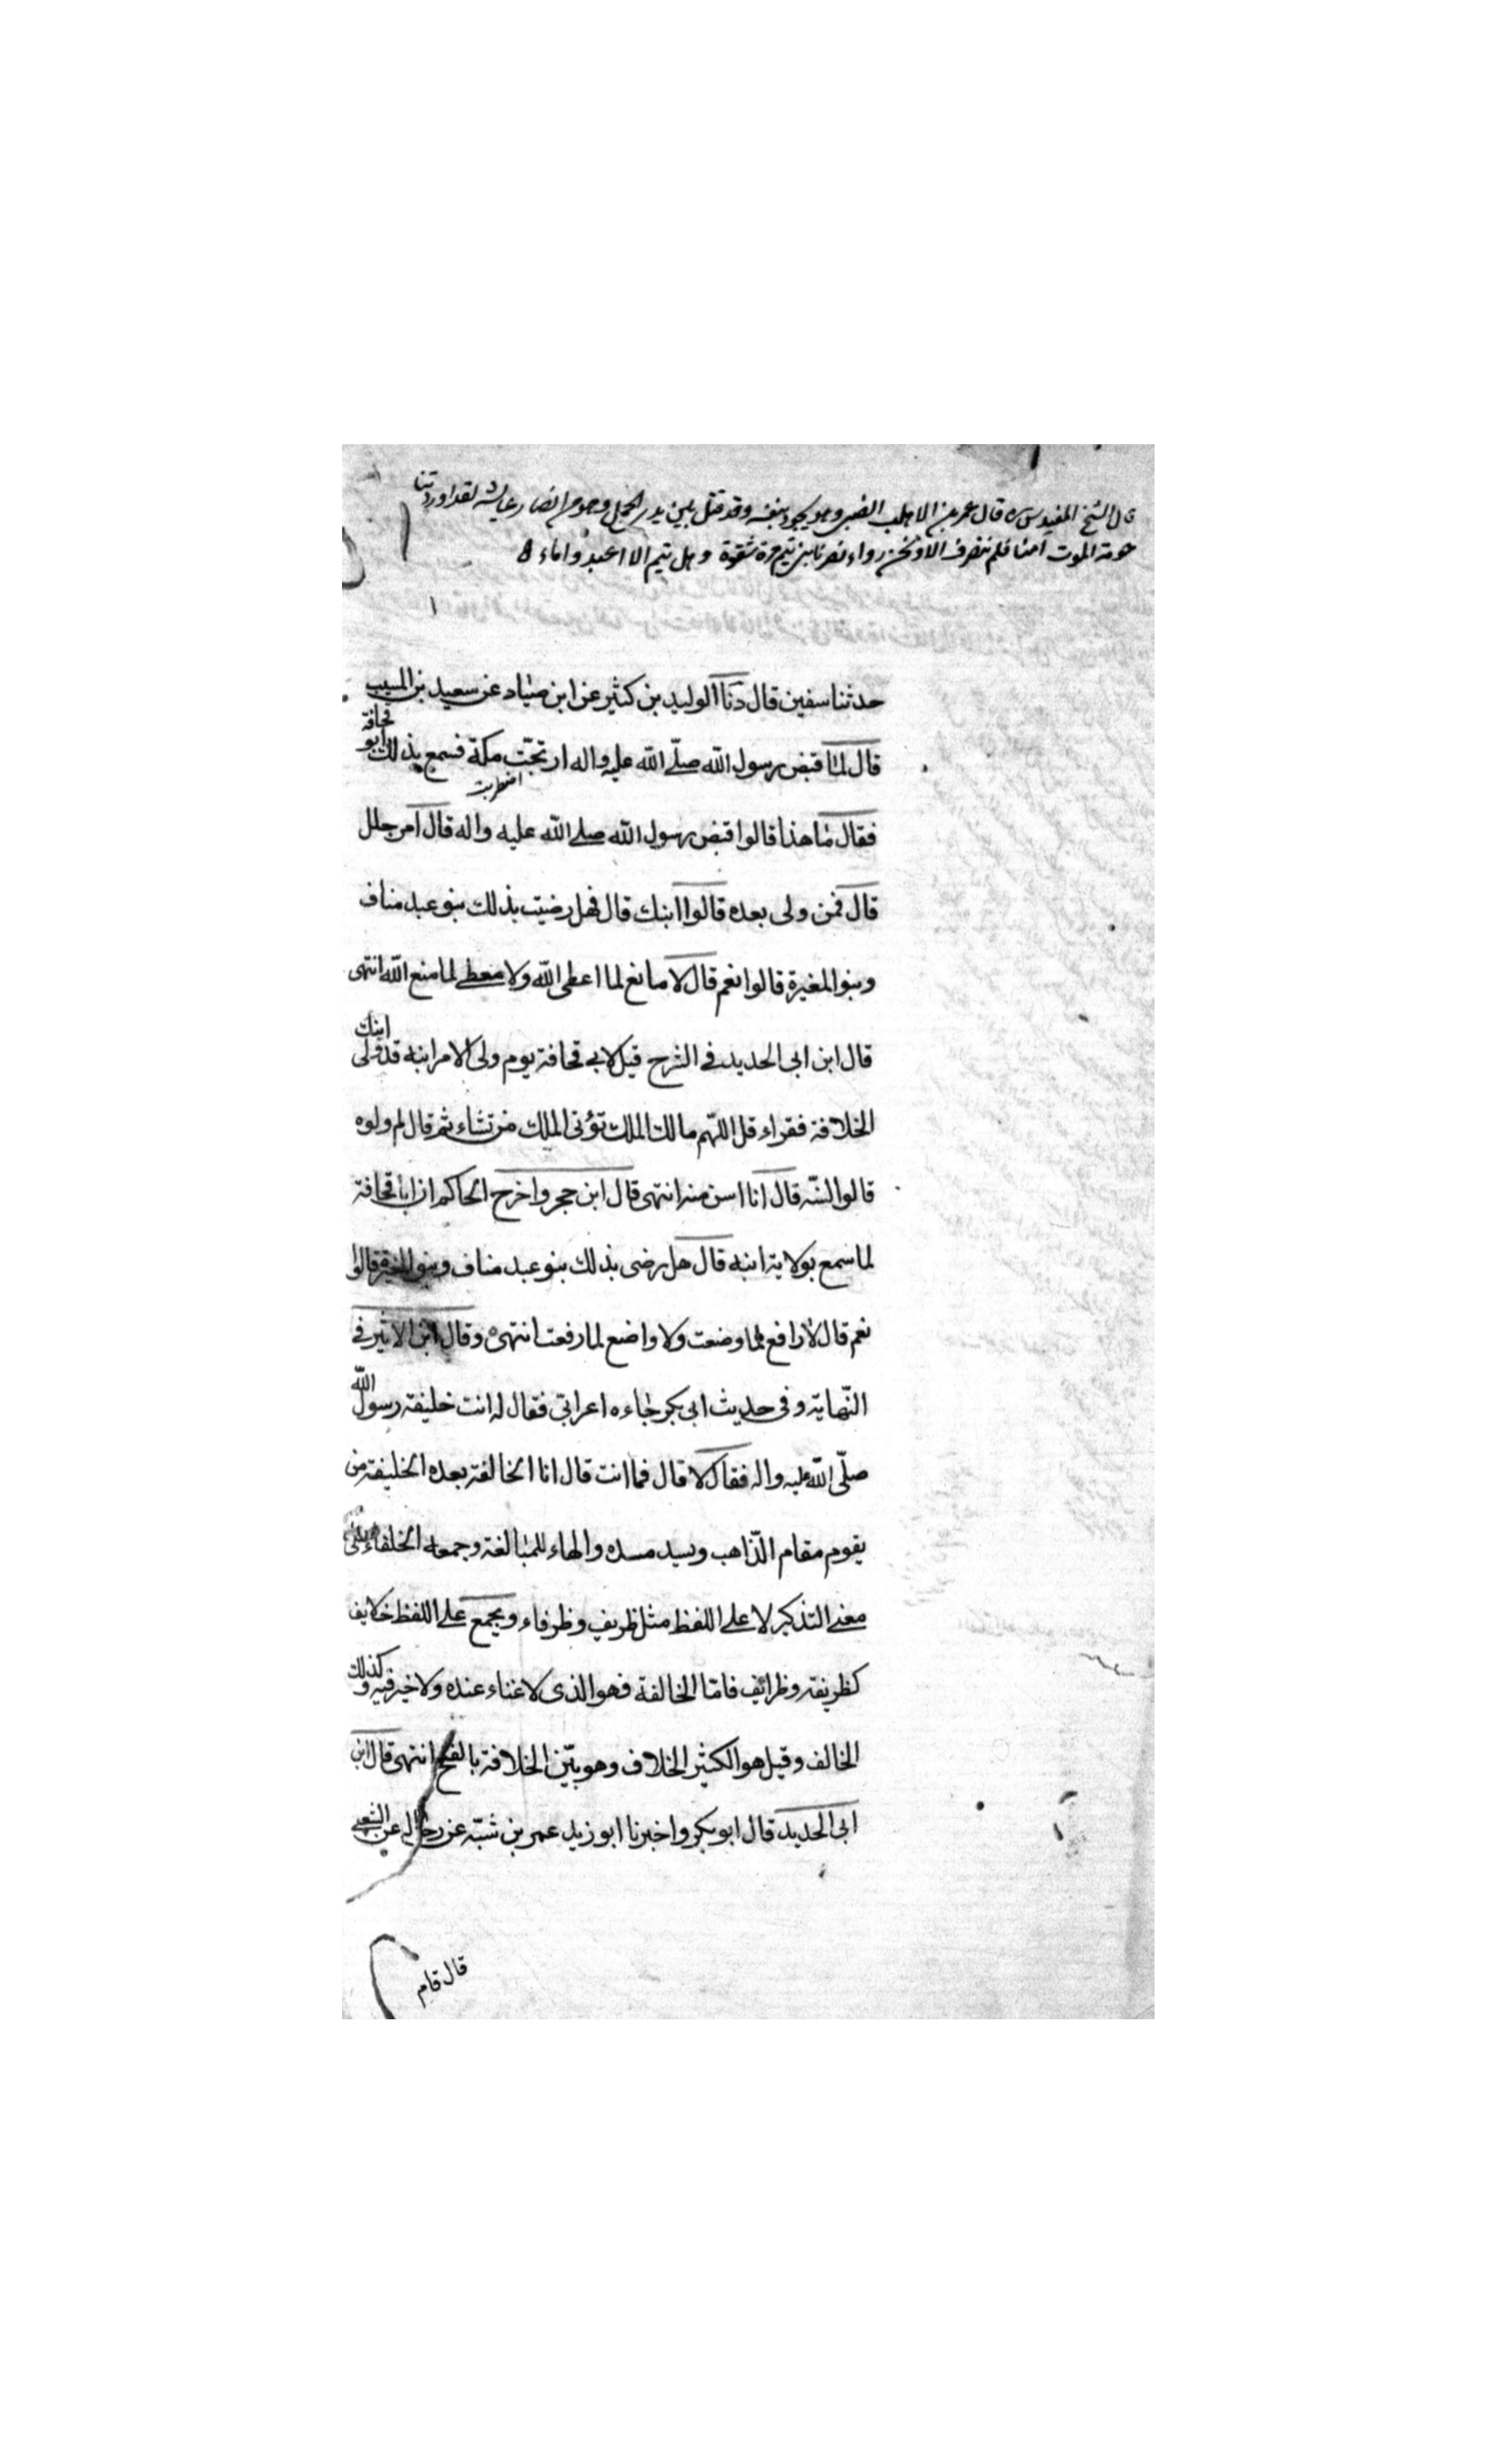 قال الشيخ المفيد س ره قال عمر بن الاهلب الضبى وهو يجود بنفسه وقد قتل بين يدى الجمل وهو من انصار عايشه لقد اوردتنا
حومة الموت امنا فلم ننصرف الا ونحن رواء نصرنا بنى تيم بن مرة شقوة وهل تيم الا اعبد واماء
حدثنا سفين قال دنا الوليد بن كثير عن ابن صياد عن سعيد بن المسيب
قال لما قبض رسول الله صلّى الله عليه واله ارتجّت مكة فسمع بذلك ابو قحافة
اضطربت
فقال ما هذا قالوا قبض رسول الله صلى الله عليه واله قال امر جلل
قال فمن ولى بعده قالوا ابنك قال فهل رضيت بذلك بنو عبد مناف
وبنو المغيرة قالوا نعم قال لا مانع لما اعطى الله ولا معطى لما منع الله انتهى
قال ابن ابى الحديد فى الشرح قيل لابى قحافة يوم ولى الامر ابنه قد ولى ابنك
الخلافة فقراء قل اللهم مالك الملك تؤتى الملك من تشاء ثم قال لم ولوه
قالوا لسنّه قال انا اسن منه انتهى قال ابن حجر واخرج الحاكم ان ابا قحافة
لما سمع بولاية ابنه قال هل رضى بذلك بنو عبد مناف وبنو المغيرة قالوا
نعم قال لا رافع لما وضعت ولا واضع لما رفعت انتهى وقال ابن الاثير فى
النّهاية وفى حديث ابى بكر جاءه اعرابى فقال له انت خليفة رسول الله
صلّى الله عليه واله فقال لا قال فما انت قال انا الخالفة بعده الخليفة من
يقوم مقام الذّاهب ويسد مسده والهاء للمبالغة وجمعه الخلفاء على
معنى التذكير لا على اللفظ مثل ظريف وظرفاء ويجمع على اللفظ خلايف
كظريفة وظرائف فامّا الخالفة فهو الذى لا غناء عنده ولا خير فيه وكذلك
الخالف وقيل هو الكثير الخلاف وهو بيّن الخلافة بالفتح انتهى قال ابن
ابى الحديد قال ابو بكر واخبرنا ابو زيد عمر بن شبّه عن رجاله عن الشعبى
قال قام